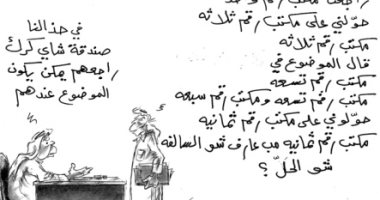 حوّلني على مكتب رقم ثلاثه
مكتب رقم ثلاثه
قال الموضوع في
مكتب رقم تسعه
مكتب رقم تسعه ومكتب رقم سبعه
حوّلوني على مكتب رقم ثمانيه
مكتب رقم ثمانيه مب عارف شو السالفه
شو الحلّ ؟
في حذالنا
صندقة شاي كرك
راجعهم يمكن يكون
الموضوع عندهم